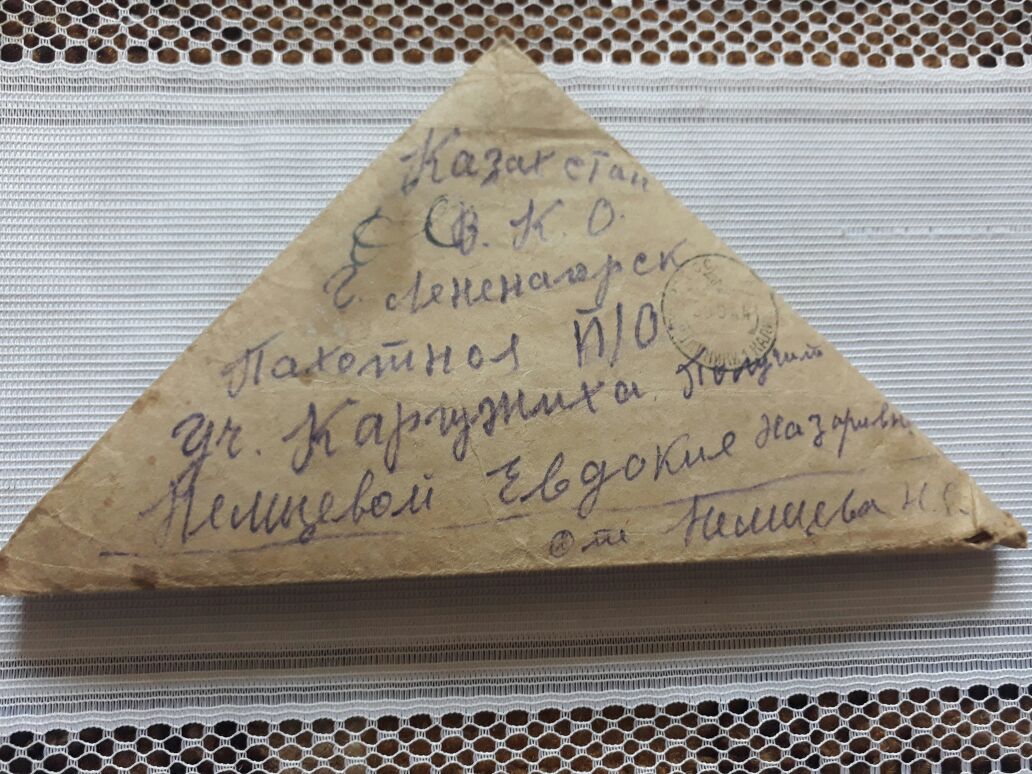 Казахстан
В. К. О.
г. Лененагорск
Пахотноя П/О
уч. Каргужиха. Получит
Немцевой Евдокия Назаровн
От Немцева Н.